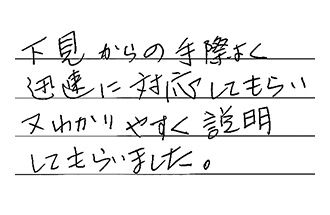 下見からの手際よく
迅速に対応してもらい
又わかりやすく説明
してもらいました。